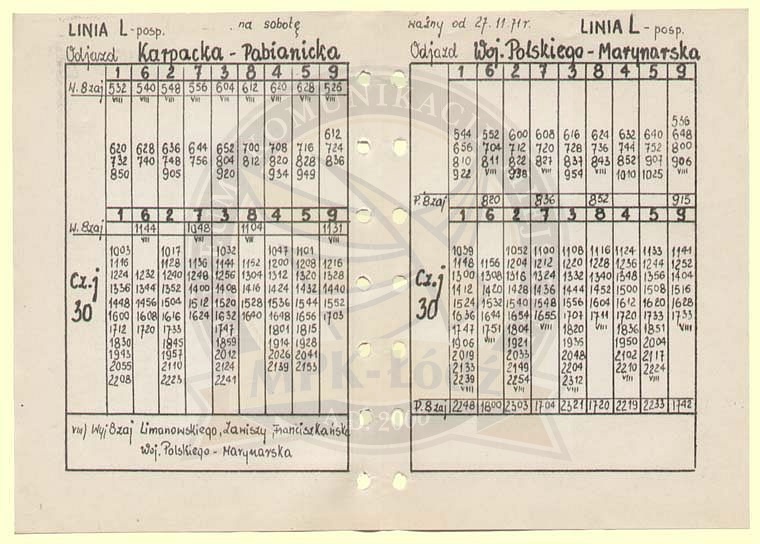 LINIA L - posp. na sobotę
Odjazd Karpacka - Pabianicka
1 6 2 7 3 8 4 5 9
W. 8zaj 532 540 548 556 604 612 620 628 526
VIII VIII VIII VIII VIII VIII VIII VIII
612
620 628 636 644 652 700 708 716 724
732 740 748 756 804 812 820 828 836
850 905 920 934 949
1 6 2 7 3 8 4 5 9
W. 8zaj 1144 1048 1104 1131
VIII VIII VIII VIII
Cz.j 30
1003 1017 1032 1047 1101
1116 1128 1136 1144 1152 1200 1208 1216
1224 1232 1240 1248 1256 1304 1312 1320 1328
1336 1344 1352 1400 1408 1416 1424 1432 1440
1448 1456 1504 1512 1520 1528 1536 1544 1552
1600 1608 1616 1624 1632 1640 1648 1656 1703
1712 1720 1733 1747 1801 1815
1830 1845 1859 1914 1928
1943 1957 2012 2026 2041
2055 2110 2124 2139 2153
2208 2223 2241
VIII) Wyj 8zaj Limanowskiego, Zawiszy, Franciszkańska
Woj. Polskiego - Marynarska
ważny od 27.11.71r. LINIA L - posp.
Odjazd Woj. Polskiego - Marynarska
1 6 2 7 3 8 4 5 9
536
544 552 600 608 616 624 632 640 648
656 704 712 720 728 736 744 752 800
810 811 822 827 837 843 852 907 906
922 VIII 938 VIII 954 VIII 1010 1025 VIII
P. 8zaj 820 836 852 915
1 6 2 7 3 8 4 5 9
Cz.j 30
1039 1052 1100 1108 1116 1124 1133 1141
1148 1156 1204 1212 1220 1228 1236 1244 1252
1300 1308 1316 1324 1332 1340 1348 1356 1404
1412 1420 1428 1436 1444 1452 1500 1508 1516
1524 1532 1540 1548 1556 1604 1612 1620 1628
1636 1644 1654 1655 1707 1711 1720 1733 1733
1747 1751 1804 VIII 1820 VIII 1836 1851 VIII
1906 VIII 1921 1935 1950 2004
2019 2033 2048 2102 2117
2133 2149 2204 2210 2224
2239 2254 2312 VIII VIII
VIII VIII VIII
P. 8zaj 2248 1800 2303 1704 2321 1720 2219 2233 1742
MPK-Łódź
A.D. 2006